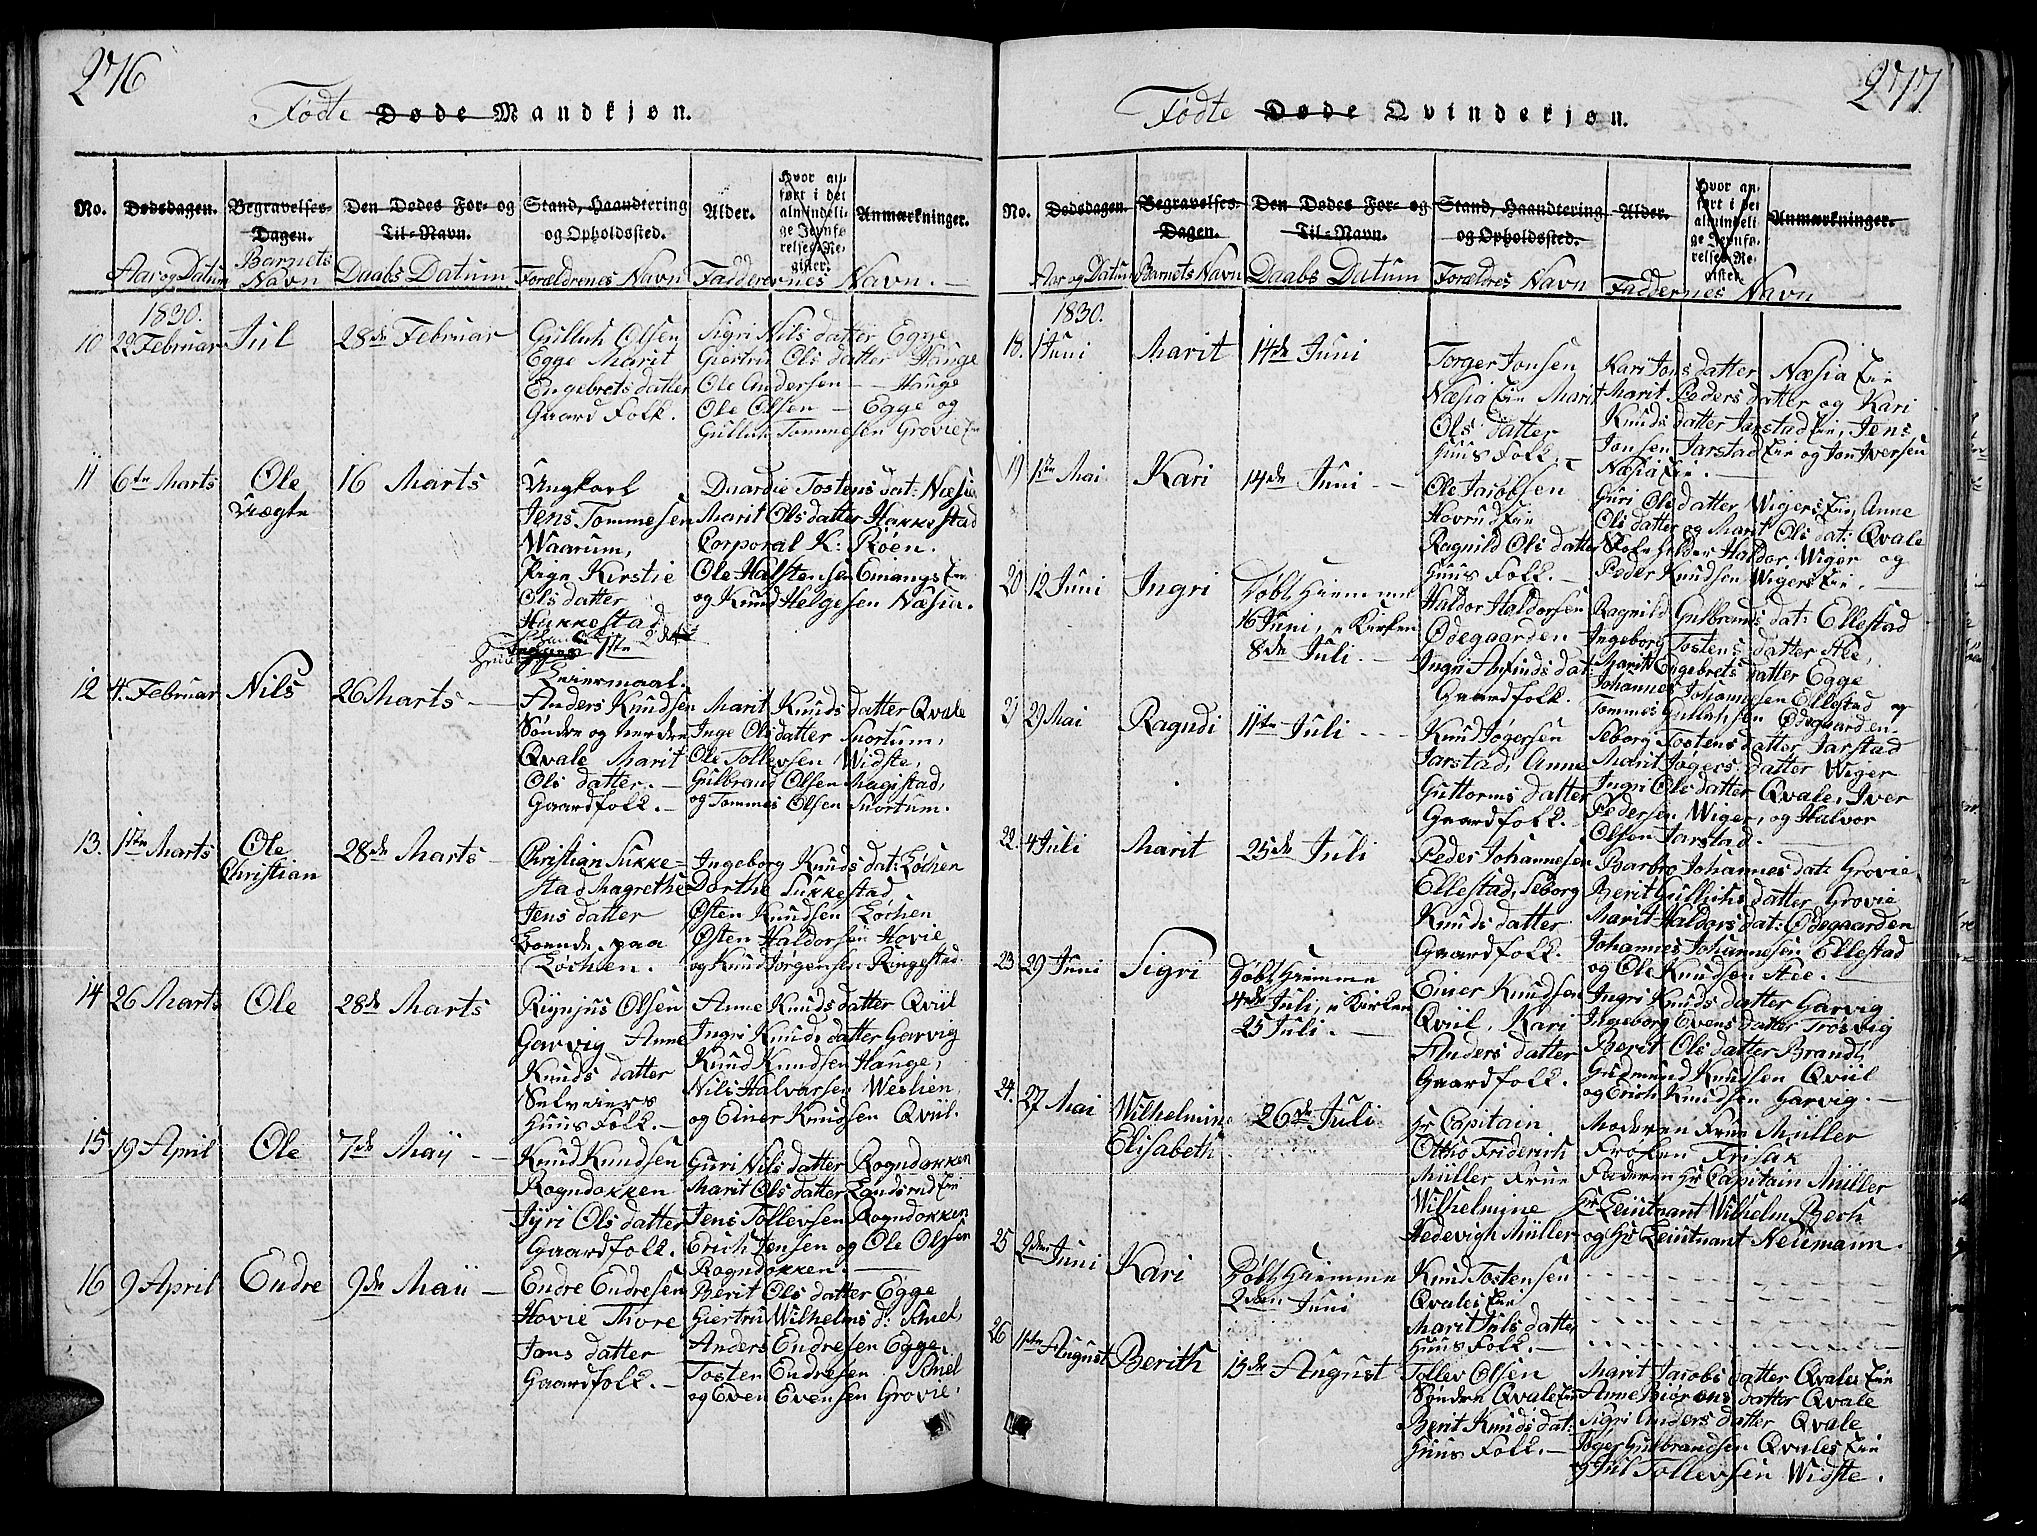 276
Fødte Døde Mandkjøn.
No. Dødsdagen. Begravelses-Dagen. Den Dødes For- og Til-Navn. Stand, Haandtering og Opholdssted. Alder. Hvor anført i det almindelige Jevnførelses-Register. Anmærkninger.
Aar og Datum Barnets Navn Daabs Datum Forældrenes Navn Faddernes Navn.
1830.
10 22 Februar Jul 28de Februar Gulluh Olsen Sigri Nils datter Egge
Egge Marit Giertru Ols datter Hauge
Engebrets datter Ole Andersen - Hauge
Gaard Folk. Ole Olsen - Egge og
Gulluh Tommesen Grovie Eie
11 6te Marts Ole 16 Marts Ungkarl Tostens dat: Næsia
Vægte Jens Tommesen Marit Ols datter Hakkestad
Waarum, Corporal K: Röen.
Pige Kirstie Ole Halstensen Einangs Eie
Ols datter og Knud Helgesen Næsia.
Hakkestad
Leiermaal.
12 4. Februar Nils 26 Marts - Anders Knudsen Marit Knuds datter Qvale
Søndre og nerdre Inge Ols datter Snortum,
Qvale Marit Ole Tollevsen Widste,
Ols datter. - Gulbrand Olsen Magistad,
Gaardfolk. - og Tommes Olsen Snortum.
13. 1ste Marts Ole 28de Marts - Christian Sukke- Ingeborg Knuds dat: Løchen
Christian stad Magrethe Dorthe Sukkestad
Jens datter Østen Knudsen Løchen
Boende paa Østen Haldorsen Hovie
Løchen. og Knud Jørgensen Ringestad
14 26 Marts Ole 28de Marts Olsen Anne Knuds datter Qviil
Garvig Anne Ingri Knuds datter Garvig
Knuds datter Knud Knudsen Hauge,
Selveiers Nils Halvorsen Weslien
Huus Folk. - og Einer Knudsen Qviil.
15 19 April Ole 7de Maij - Knud Knudsen Guri Nils datter Rogndokken
Rogndokken Marit Ols datter Eie
Jyri Ols datter Jens Tollevsen Rogndokken
Gaardfolk. Erich Jensen og Ole Olsen
Rogndokken. -
16 9 April Endre 9de Maii - Endre Endresen Berit Ols datter Egge
Hovie Thore Giertru Wilhelms d: Kniel,
Jons datter Anders Endresen Egge,
Gaardfolk. - Tosten Endresen Kniel
og Even Evensen Grovie.
277
Fødte Døde Qvindekjøn.
No. Dødsdagen. Begravelses-Dagen. Den Dødes For- og Til-Navn. Stand, Haandtering og Opholdssted. Alder. Hvor anført i det almindelige Jevnførelses-Register. Anmærkninger.
Aar og Datum Barnets Navn Daabs Datum Forældres Navn Faddernes Navn
1830.
18. 1 Juni Marit 14de Juni Torger Jonsen Kari Jons datter Næsia Eie
Næsia Eie Marit Marit Peders datter og Kari
Ols datter Knuds datter Jarstad Eie, Jens
Huus Folk. - Jonsen Jarstad Eie og Jon Iversen
Næsia Eie. -
19 1ste Mai Kari 14de Juni - - Ole Jacobsen Guri Ols datter Wigers Eie, Anne
Hovrud Eie Ols datter og Marit Ols dat: Qvale
Ragnild Ols datter Skoleholder Haldor Wiger og
Huus Folk. - Peder Knudsen Wigers Eie. -
20 12 Juni Ingri Døbt Hiemme Haldor Haldorsen Ragnild Gulbrands dat: Ellestad
16 Juni, i Kirken Ødegaarden Ingeborg Tostens datter Aee,
8de Juli. - Ingri Anfinds dat: Marit Engebrets datter Egge
Gaardfolk. Johannes Johannesen Ellestad og
Tommes Gulluhsen Ødegaarden.
21 29 Mai Ragndi 11te Juli - - - Knud Jøgersen Seborg Tostens datter Jarstad
Jarstad, Anne Marit Jogers datter Wiger
Guttorms datter Ingri Ols datter Qvale, Iver
Gaardfolk. Pedersen Wiger, og Halvor
Olsen Jarstad. -
22. 4 Juli Marit 25de Juli Peder Johannesen Barbro Johannes dat: Grovie
Ellestad, Seborg Berit Gulluhs datter Grovie
Knuds datter Marit Haldors dat: Ødegaarden
Gaardfolk. Johannes Johannesen Ellestad
og Ole Knudsen Aee. -
23 29 Juni Sigri Døbt Hiemme Einer Knudsen Ingri Knuds datter Garvig
4de Juli, i Kirken Qviil, Kari Ingeborg Evens datter Trøsvig
25 Juli. - Anders datter Berit Ols datter Brandt,
Gaardfolk. Gudmund Knudsen Qviil
og Erich Knudsen Garvig. -
24. 27 Mai Wilhelmine 26de Juli Hr Capitain Moderen Frue Müller
Elisabeth Ottho Friderich Frøken Frisak
Müller Frue Faderen Hr Capitain Müller
Wilhelmine Hr Leiutnant Wilhelm Bech
Hedevigh Müller og Hr Leiutnant Neumann.
25 2den Juni Kari Døbt Hiemme Knud Tostensen
2den Juni Qvales Eie
Marit Juls datter
Huus Folk. -
26 11te August Berith 15de August Tollev Olsen Marit Jacobs datter Qvales Eie
Søndre Qvale Eie Anne datter Qvale
Berit Knuds dat: Sigri Anders datter Qvale
Huus Folk. - Jøger Gulbrandsen Qvales Eie
og Jul Tollevsen Widste.